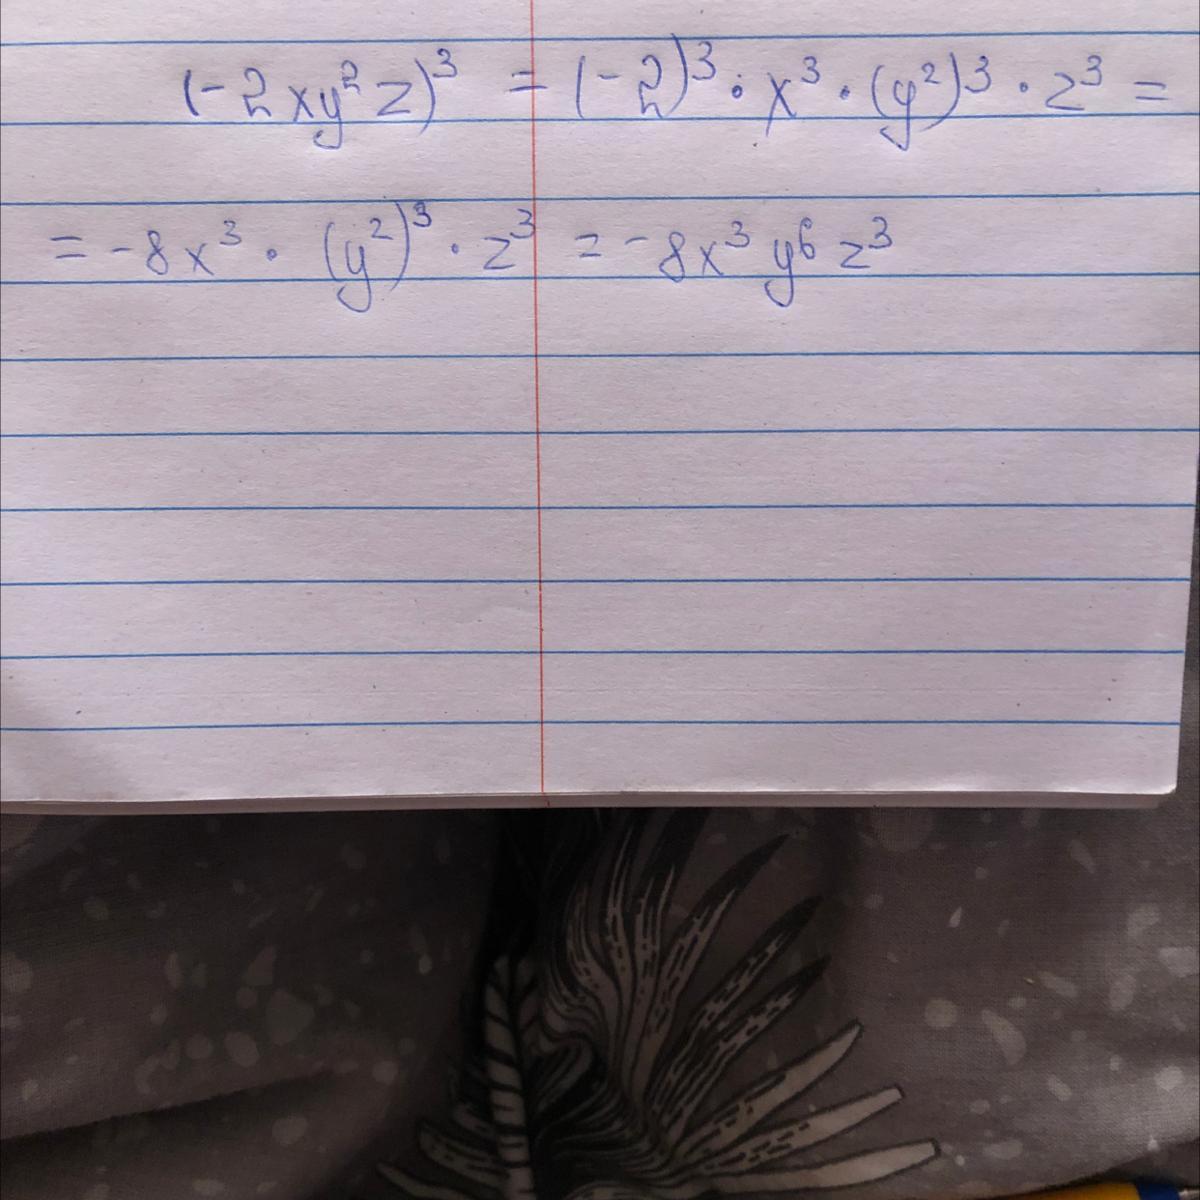 (-2xy²z)³ = (-2)³ · x³ · (y²)³ · z³ =
= -8x³ · (y²)³ · z³ = -8x³y⁶z³